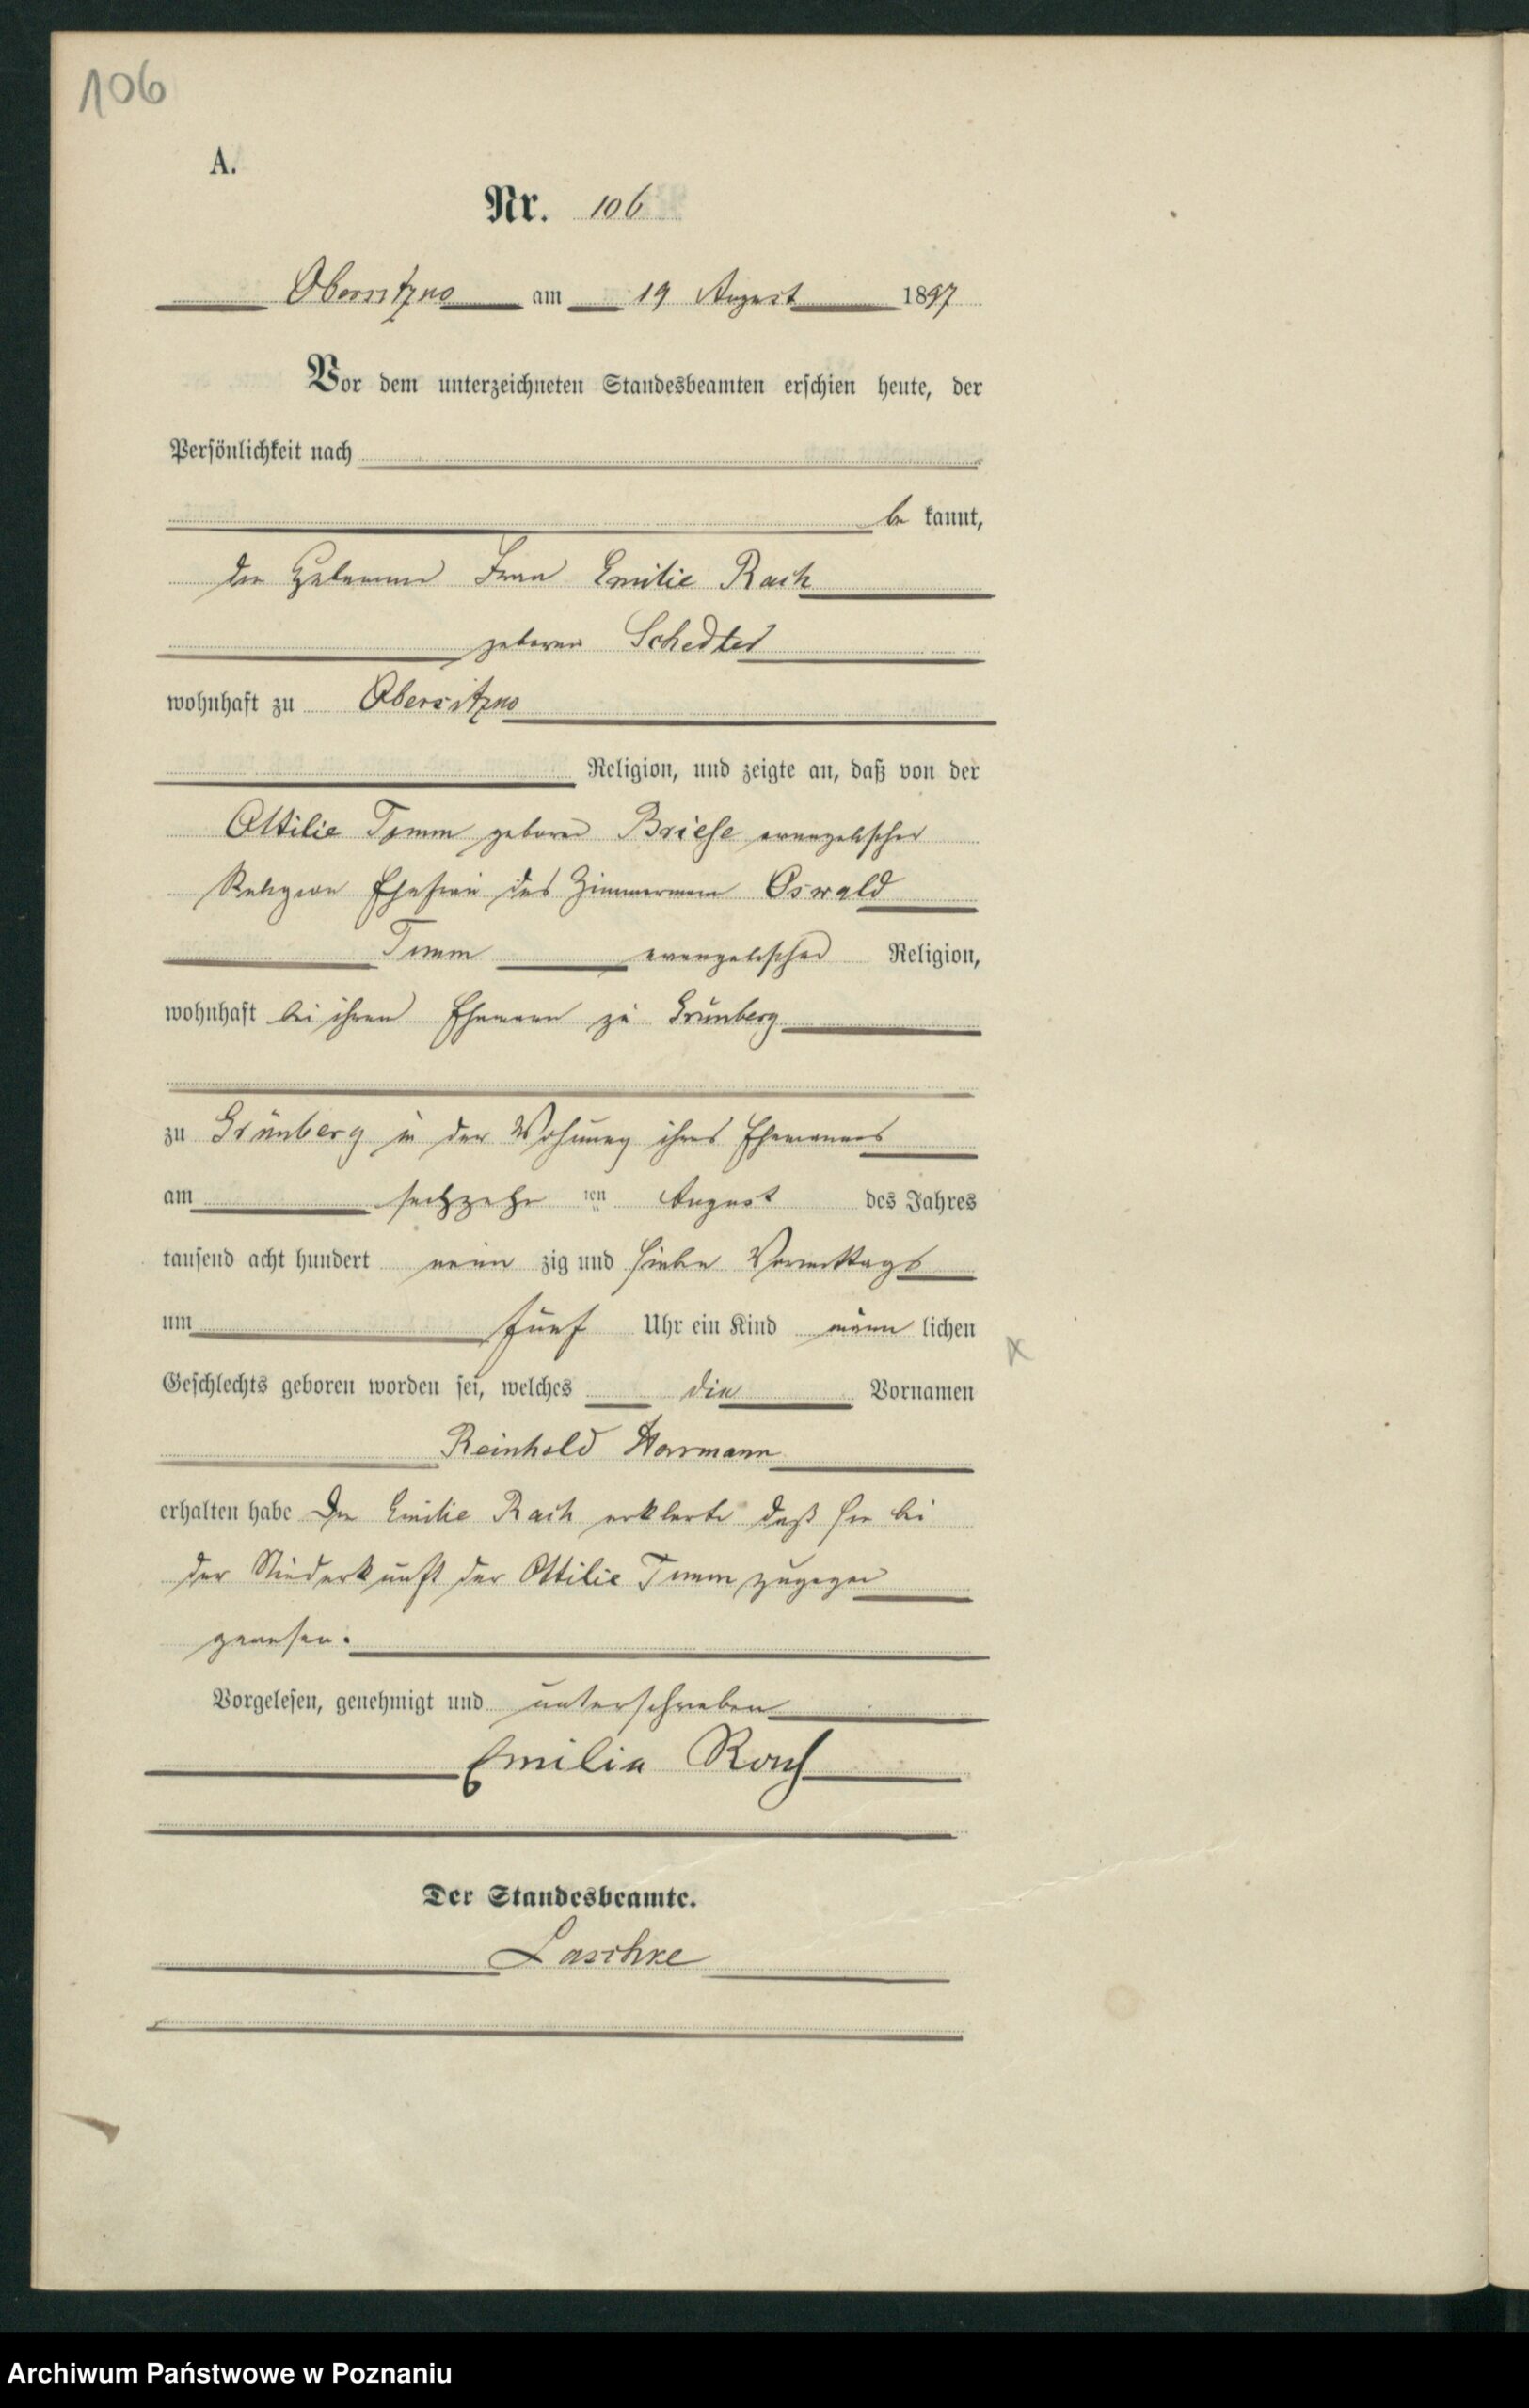 106
A.
Nr. 106
Obersitzno am 19 August 1897
Vor dem unterzeichneten Standesbeamten erschien heute, der
Persönlichkeit nach
be kannt,
die Hebamme Frau Emilie Rach
geboren
wohnhaft zu Obersitzno
Religion, und zeigte an, daß von der
Ottilie Timm geboren Briese evangelischer
Religion Ehefrau des Zimmermann Oswald
Timm evangelischer Religion,
wohnhaft bei ihrem Ehemann zu Grünberg
zu Grünberg in der Wohnung ihres Ehemannes
am sechzehn ten August des Jahres
tausend acht hundert neun zig und sieben Vormittags
um fünf Uhr ein Kind männ lichen
Geschlechts geboren worden sei, welches die Vornamen
Reinhold Hermann
erhalten habe Die Emilie Rach erklerte daß sie bei
der Niederkunft der Ottilie Timm zugegen
gewesen.
Vorgelesen, genehmigt und unterschrieben
Emilie Rach
Der Standesbeamte.
Laschke
Archiwum Państwowe w Poznaniu